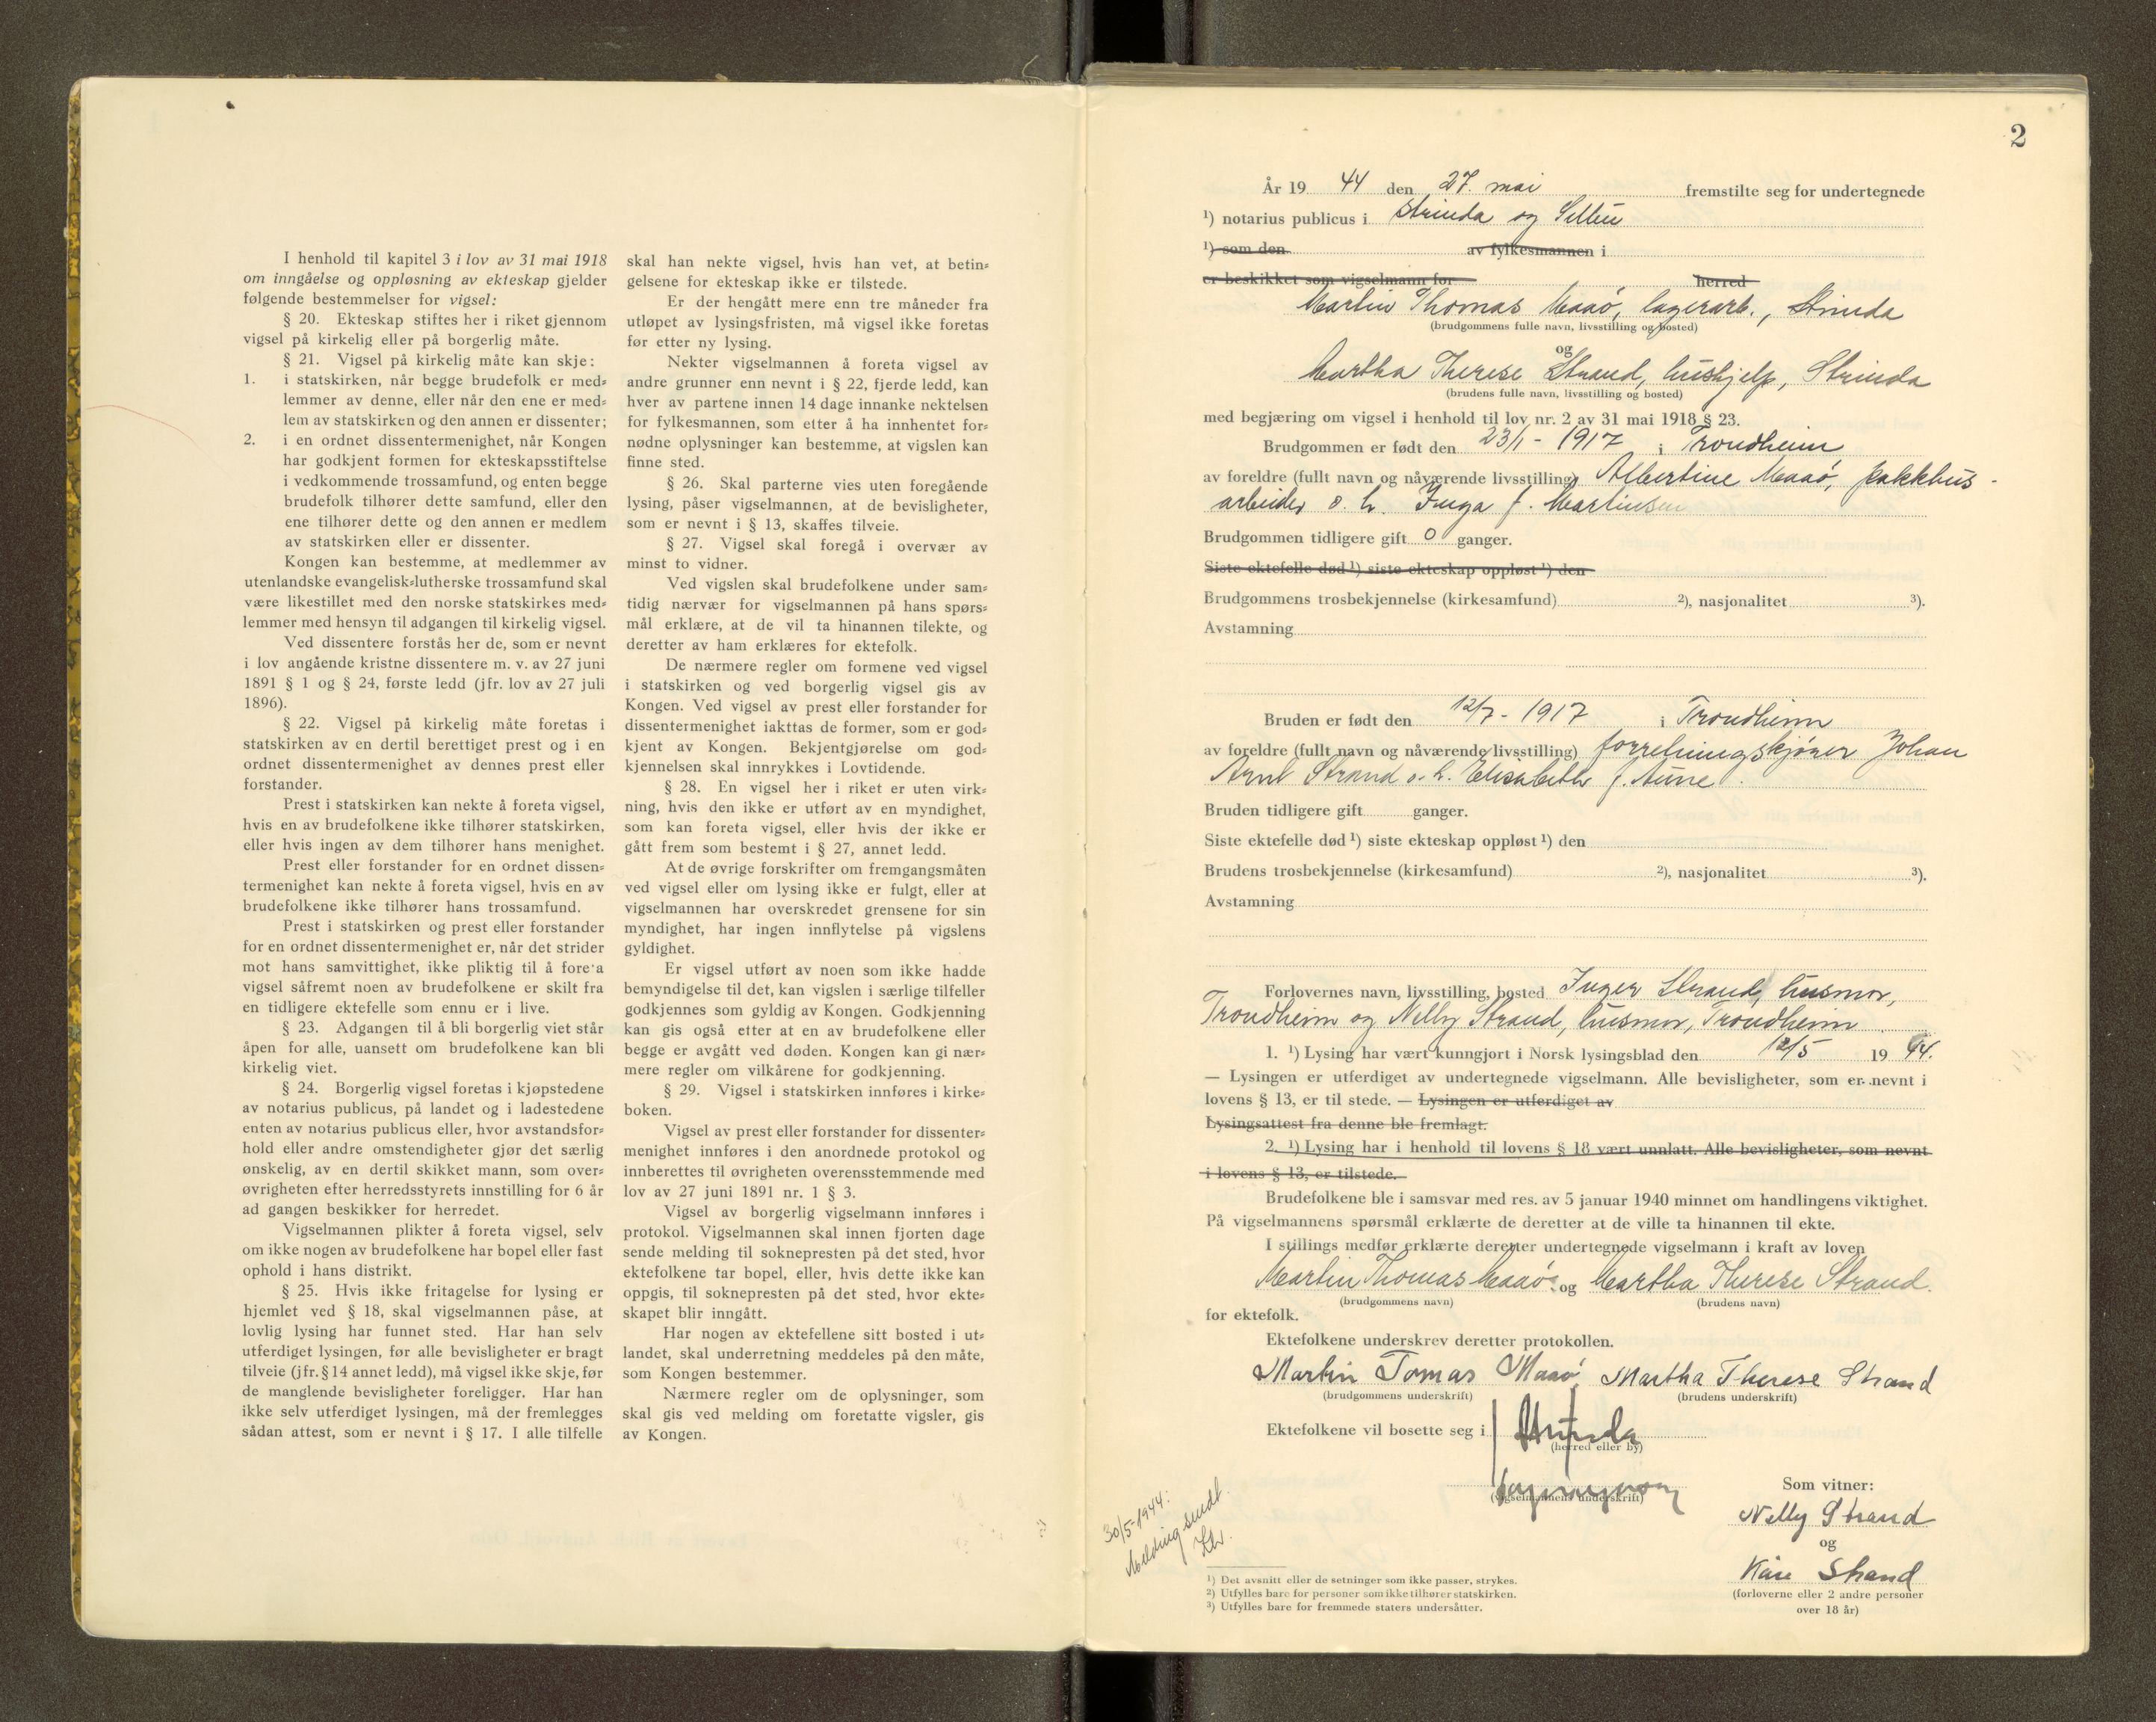 I henhold til kapitel 3 i lov av 31 mai 1918
om inngåelse og oppløsning av ekteskap gjelder
følgende bestemmelser for vigsel:
§ 20. Ekteskap stiftes her i riket gjennom
vigsel på kirkelig eller på borgerlig måte.
§ 21. Vigsel på kirkelig måte kan skje:
1. i statskirken, når begge brudefolk er med-
lemmer av denne, eller når den ene er med-
lem av statskirken og den annen er dissenter;
2. i en ordnet dissentermenighet, når Kongen
har godkjent formen for ekteskapsstiftelse
i vedkommende trossamfund, og enten begge
brudefolk tilhører dette samfund, eller den
ene tilhører dette og den annen er medlem
av statskirken eller er dissenter.
Kongen kan bestemme, at medlemmer av
utenlandske evangelisk-lutherske trossamfund skal
være likestillet med den norske statskirkes med-
lemmer med hensyn til adgangen til kirkelig vigsel.
Ved dissentere forstås her de, som er nevnt
i lov angående kristne dissentere m. v. av 27 juni
1891 § 1 og § 24, første ledd (jfr. lov av 27 juli
1896).
§ 22. Vigsel på kirkelig måte foretas i
statskirken av en dertil berettiget prest og i en
ordnet dissentermenighet av dennes prest eller
forstander.
Prest i statskirken kan nekte å foreta vigsel,
hvis en av brudefolkene ikke tilhører statskirken,
eller hvis ingen av dem tilhører hans menighet.
Prest eller forstander for en ordnet dissen-
termenighet kan nekte å foreta vigsel, hvis en av
brudefolkene ikke tilhører hans trossamfund.
Prest i statskirken og prest eller forstander
for en ordnet dissentermenighet er, når det strider
mot hans samvittighet, ikke pliktig til å foreta
vigsel såfremt noen av brudefolkene er skilt fra
en tidligere ektefelle som ennu er i live.
§ 23. Adgangen til å bli borgerlig viet står
åpen for alle, uansett om brudefolkene kan bli
kirkelig viet.
§ 24. Borgerlig vigsel foretas i kjøpstedene
av notarius publicus, på landet og i ladestedene
enten av notarius publicus eller, hvor avstandsfor-
hold eller andre omstendigheter gjør det særlig
ønskelig, av en dertil skikket mann, som over-
øvrigheten efter herredsstyrets innstilling for 6 år
ad gangen beskikker for herredet.
Vigselmannen plikter å foreta vigsel, selv
om ikke nogen av brudefolkene har bopel eller fast
ophold i hans distrikt.
§ 25. Hvis ikke fritagelse for lysing er
hjemlet ved § 18, skal vigselmannen påse, at
lovlig lysing har funnet sted. Har han selv
utferdiget lysingen, før alle bevisligheter er bragt
tilveie (jfr. § 14 annet ledd), må vigsel ikke skje, før
de manglende bevisligheter foreligger. Har han
ikke selv utferdiget lysingen, må der fremlegges
sådan attest, som er nevnt i § 17. I alle tilfelle
skal han nekte vigsel, hvis han vet, at betin-
gelsene for ekteskap ikke er tilstede.
Er der hengått mere enn tre måneder fra
utløpet av lysingsfristen, må vigsel ikke foretas
før etter ny lysing.
Nekter vigselmannen å foreta vigsel av
andre grunner enn nevnt i § 22, fjerde ledd, kan
hver av partene innen 14 dage innanke nektelsen
for fylkesmannen, som etter å ha innhentet for-
nødne oplysninger kan bestemme, at vigslen kan
finne sted.
§ 26. Skal parterne vies uten foregående
lysing, påser vigselmannen, at de bevisligheter,
som er nevnt i § 13, skaffes tilveie.
§ 27. Vigsel skal foregå i overvær av
minst to vidner.
Ved vigslen skal brudefolkene under sam-
tidig nærvær for vigselmannen på hans spørs-
mål erklære, at de vil ta hinannen tilekte, og
deretter av ham erklæres for ektefolk.
De nærmere regler om formene ved vigsel
i statskirken og ved borgerlig vigsel gis av
Kongen. Ved vigsel av prest eller forstander for
dissentermenighet iakttas de former, som er god-
kjent av Kongen. Bekjentgjørelse om god-
kjennelsen skal innrykkes i Lovtidende.
§ 28. En vigsel her i riket er uten virk-
ning, hvis den ikke er utført av en myndighet,
som kan foreta vigsel, eller hvis der ikke er
gått frem som bestemt i § 27, annet ledd.
At de øvrige forskrifter om fremgangsmåten
ved vigsel eller om lysing ikke er fulgt, eller at
vigselmannen har overskredet grensene for sin
myndighet, har ingen innflytelse på vigslens
gyldighet.
Er vigsel utført av noen som ikke hadde
bemyndigelse til det, kan vigslen i særlige tilfeller
godkjennes som gyldig av Kongen. Godkjenning
kan gis også etter at en av brudefolkene eller
begge er avgått ved døden. Kongen kan gi nær-
mere regler om vilkårene for godkjenning.
§ 29. Vigsel i statskirken innføres i kirke-
boken.
Vigsel av prest eller forstander for dissenter-
menighet innføres i den anordnede protokol og
innberettes til øvrigheten overensstemmende med
lov av 27 juni 1891 nr. 1 § 3.
Vigsel av borgerlig vigselmann innføres i
protokol. Vigselmannen skal innen fjorten dage
sende melding til soknepresten på det sted, hvor
ektefolkene tar bopel, eller, hvis dette ikke kan
oppgis, til soknepresten på det sted, hvor ekte-
skapet blir inngått.
Har nogen av ektefellene sitt bosted i ut-
landet, skal underretning meddeles på den måte,
som Kongen bestemmer.
Nærmere regler om de oplysninger, som
skal gis ved melding om foretatte vigsler, gis
av Kongen.
2
År 19 44 den 27. mai fremstilte seg for undertegnede
1) notarius publicus i Strinda og Selbu
1) som den av fylkesmannen i
er beskikket som vigselmann for herred
Martin Thomas Maaø, lagerarb., Strinda
(brudgommens fulle navn, livsstilling og bosted)
og
Martha Therese Strand, hushjelp, Strinda
(brudens fulle navn, livsstilling og bosted)
med begjæring om vigsel i henhold til lov nr. 2 av 31 mai 1918 § 23.
Brudgommen er født den 23/1 - 1917 i Trondheim
av foreldre (fullt navn og nåværende livsstilling) Albertine Maaø, pakkhus-
arbeider o. h. Inga f. Martinsen
Brudgommen tidligere gift 0 ganger.
Siste ektefelle død 1) siste ekteskap oppløst 1) den
Brudgommens trosbekjennelse (kirkesamfund) 2), nasjonalitet 3).
Avstamning
Bruden er født den 12/7 - 1917 i Trondheim
av foreldre (fullt navn og nåværende livsstilling) forretningskjører Johan
Arnt Strand o. h. Elisabeth f. Aune.
Bruden tidligere gift ganger.
Siste ektefelle død 1) siste ekteskap oppløst 1) den
Brudens trosbekjennelse (kirkesamfund) 2), nasjonalitet 3).
Avstamning
Forlovernes navn, livsstilling, bosted Inger Strand, husmor,
Trondheim og Nelly Strand, husmor, Trondheim
1. 1) Lysing har vært kunngjort i Norsk lysingsblad den 12/5 19 44.
— Lysingen er utferdiget av undertegnede vigselmann. Alle bevisligheter, som er nevnt i
lovens § 13, er til stede. — Lysingen er utferdiget av
Lysingsattest fra denne ble fremlagt.
2. 1) Lysing har i henhold til lovens § 18 vært unnlatt. Alle bevisligheter, som nevnt
i lovens § 13, er tilstede.
Brudefolkene ble i samsvar med res. av 5 januar 1940 minnet om handlingens viktighet.
På vigselmannens spørsmål erklærte de deretter at de ville ta hinannen til ekte.
I stillings medfør erklærte deretter undertegnede vigselmann i kraft av loven
Martin Thomas Maaø og Martha Therese Strand.
(brudgommens navn) (brudens navn)
for ektefolk.
Ektefolkene underskrev deretter protokollen.
Martin Tomas Maaø Martha Therese Strand
(brudgommens underskrift) (brudens underskrift)
Ektefolkene vil bosette seg i Strinda
(herred eller by)
(vigselmannens underskrift)
Som vitner:
Nelly Strand
og
Kåre Strand
(forloverne eller 2 andre personer
over 18 år)
30/5-1944:
Melding sendt.
1) Det avsnitt eller de setninger som ikke passer, strykes.
2) Utfylles bare for personer som ikke tilhører statskirken.
3) Utfylles bare for fremmede staters undersåtter.